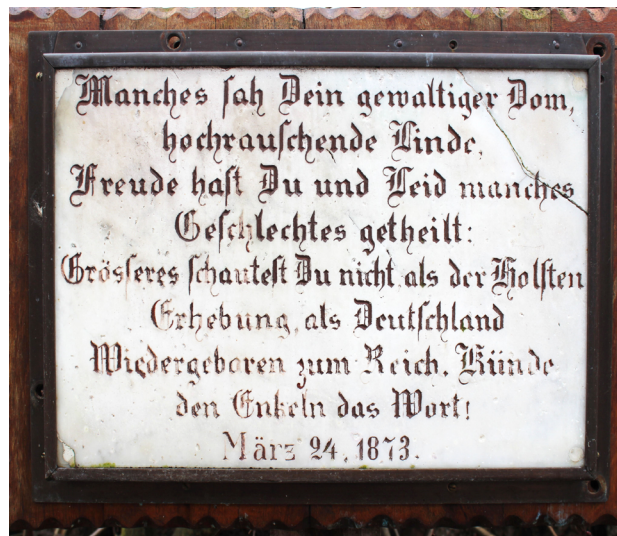 Manches ſah Dein gewaltiger Dom,
hochrauſchende Linde,
Freude haſt Du und Leid manches
Geſchlechtes getheilt:
Gröſseres ſchauteſt Du nicht als der Holſten
Erhebung, als Deutſchland
Wiedergeboren zum Reich. Künde
den Enkeln das Wort!
März 24. 1873.